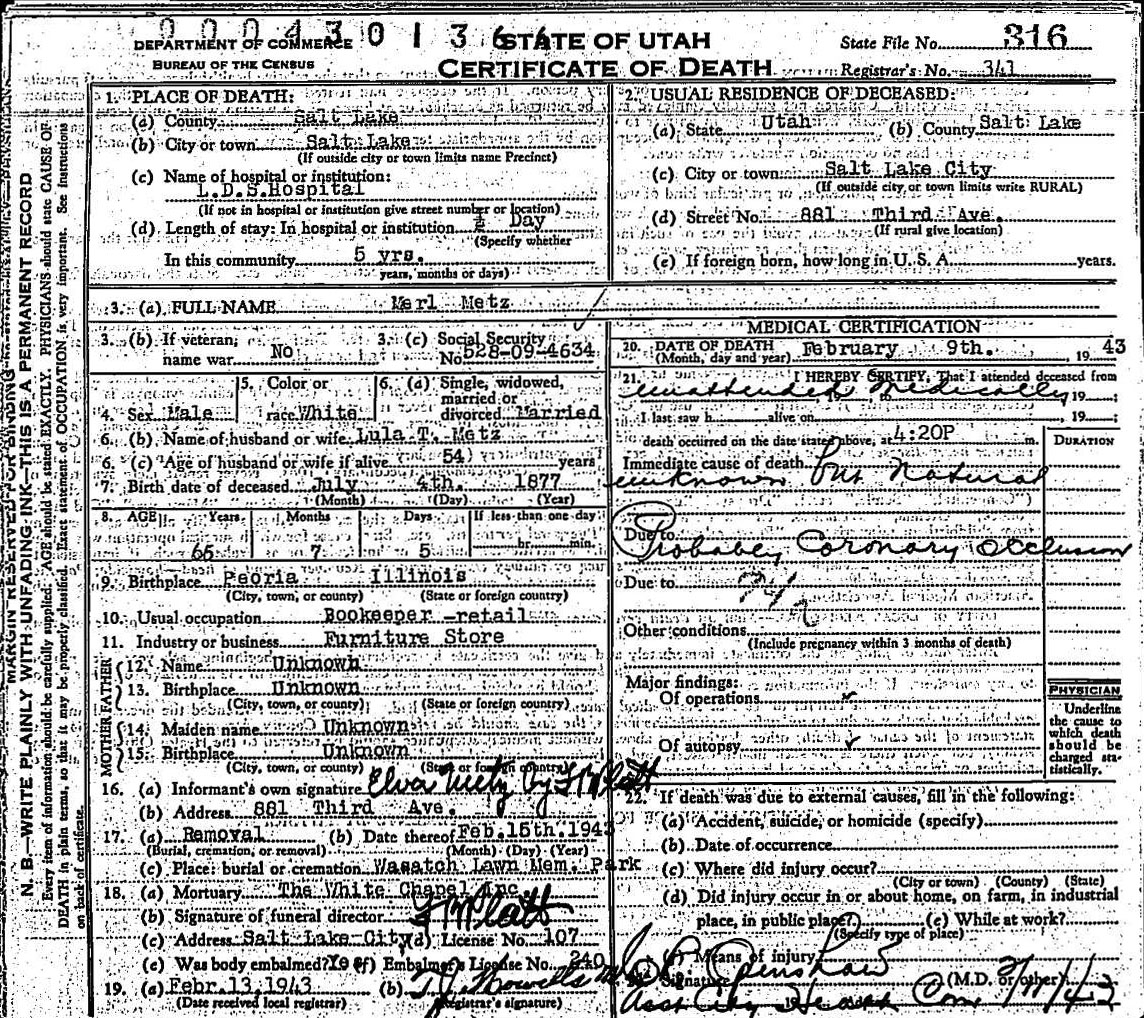 0004301366
DEPARTMENT OF COMMERCE
BUREAU OF THE CENSUS
STATE OF UTAH
CERTIFICATE OF DEATH
State File No. 316
Registrar's No. 341
1. PLACE OF DEATH:
(a) County Salt Lake
(b) City or town Salt Lake
(If outside city or town limits name Precinct)
(c) Name of hospital or institution:
L.D.S.Hospital
(If not in hospital or institution give street number or location)
(d) Length of stay: In hospital or institution ½ Day
(Specify whether
In this community 5 yrs.
years, months or days)
2. USUAL RESIDENCE OF DECEASED:
(a) State Utah (b) County Salt Lake
(c) City or town Salt Lake City
(If outside city or town limits write RURAL)
(d) Street No. 881 Third Ave.
(If rural give location)
(e) If foreign born, how long in U. S. A. years.
3. (a) FULL NAME Karl Metz
3. (b) If veteran, name war No
3. (c) Social Security No. 528-09-4634
4. Sex Male
5. Color or race White
6. (a) Single, widowed, married or divorced Married
6. (b) Name of husband or wife Lula T. Metz
6. (c) Age of husband or wife if alive 54 years
7. Birth date of deceased July 4th. 1877
(Month) (Day) (Year)
8. AGE Years Months Days If less than one day
65 7 5 hr. min.
9. Birthplace Peoria Illinois
(City, town, or county) (State or foreign country)
10. Usual occupation Bookeeper -retail
11. Industry or business Furniture Store
FATHER
12. Name Unknown
13. Birthplace Unknown
(City, town, or county) (State or foreign country)
MOTHER
14. Maiden name Unknown
15. Birthplace Unknown
(City, town, or county) (State or foreign country)
16. (a) Informant's own signature Elva Metz by F W Platt
(b) Address 881 Third Ave.
17. (a) Removal (b) Date thereof Feb.15th.1943
(Burial, cremation, or removal) (Month) (Day) (Year)
(c) Place: burial or cremation Wasatch Lawn Mem. Park
18. (a) Mortuary The White Chapel Inc
(b) Signature of funeral director F W Platt
(c) Address Salt Lake City (d) License No. 107
(e) Was body embalmed? Yes (f) Embalmer's License No. 240
19. (a) Febr.13,1943 (b) T.J. Howells
(Date received local registrar) (Registrar's signature)
MEDICAL CERTIFICATION
20. DATE OF DEATH February 9th. 1943
(Month, day and year)
21. I HEREBY CERTIFY, That I attended deceased from
unattended medically 19 ;
I last saw h alive on 19 ;
death occurred on the date stated above, at 4:20P m.
DURATION
Immediate cause of death
unknown but Natural
Due to
Probabey Coronary Occlusion
Due to
Other conditions
(Include pregnancy within 3 months of death)
Major findings:
Of operations
Of autopsy
PHYSICIAN
Underline
the cause to
which death
should be
charged sta-
tistically.
22. If death was due to external causes, fill in the following:
(a) Accident, suicide, or homicide (specify)
(b) Date of occurrence
(c) Where did injury occur?
(City or town) (County) (State)
(d) Did injury occur in or about home, on farm, in industrial
place, in public place? (e) While at work?
(Specify type of place)
(f) Means of injury
Signature Openshaw (M.D. or other)
Asst City Health Com 2/11/43
MARGIN RESERVED FOR BINDING
N. B.—WRITE PLAINLY WITH UNFADING INK—THIS IS A PERMANENT RECORD
Every item of information should be carefully supplied. AGE should be stated EXACTLY. PHYSICIANS should state CAUSE OF
DEATH in plain terms, so that it may be properly classified. Exact statement of OCCUPATION is very important. See instructions
on back of certificate.